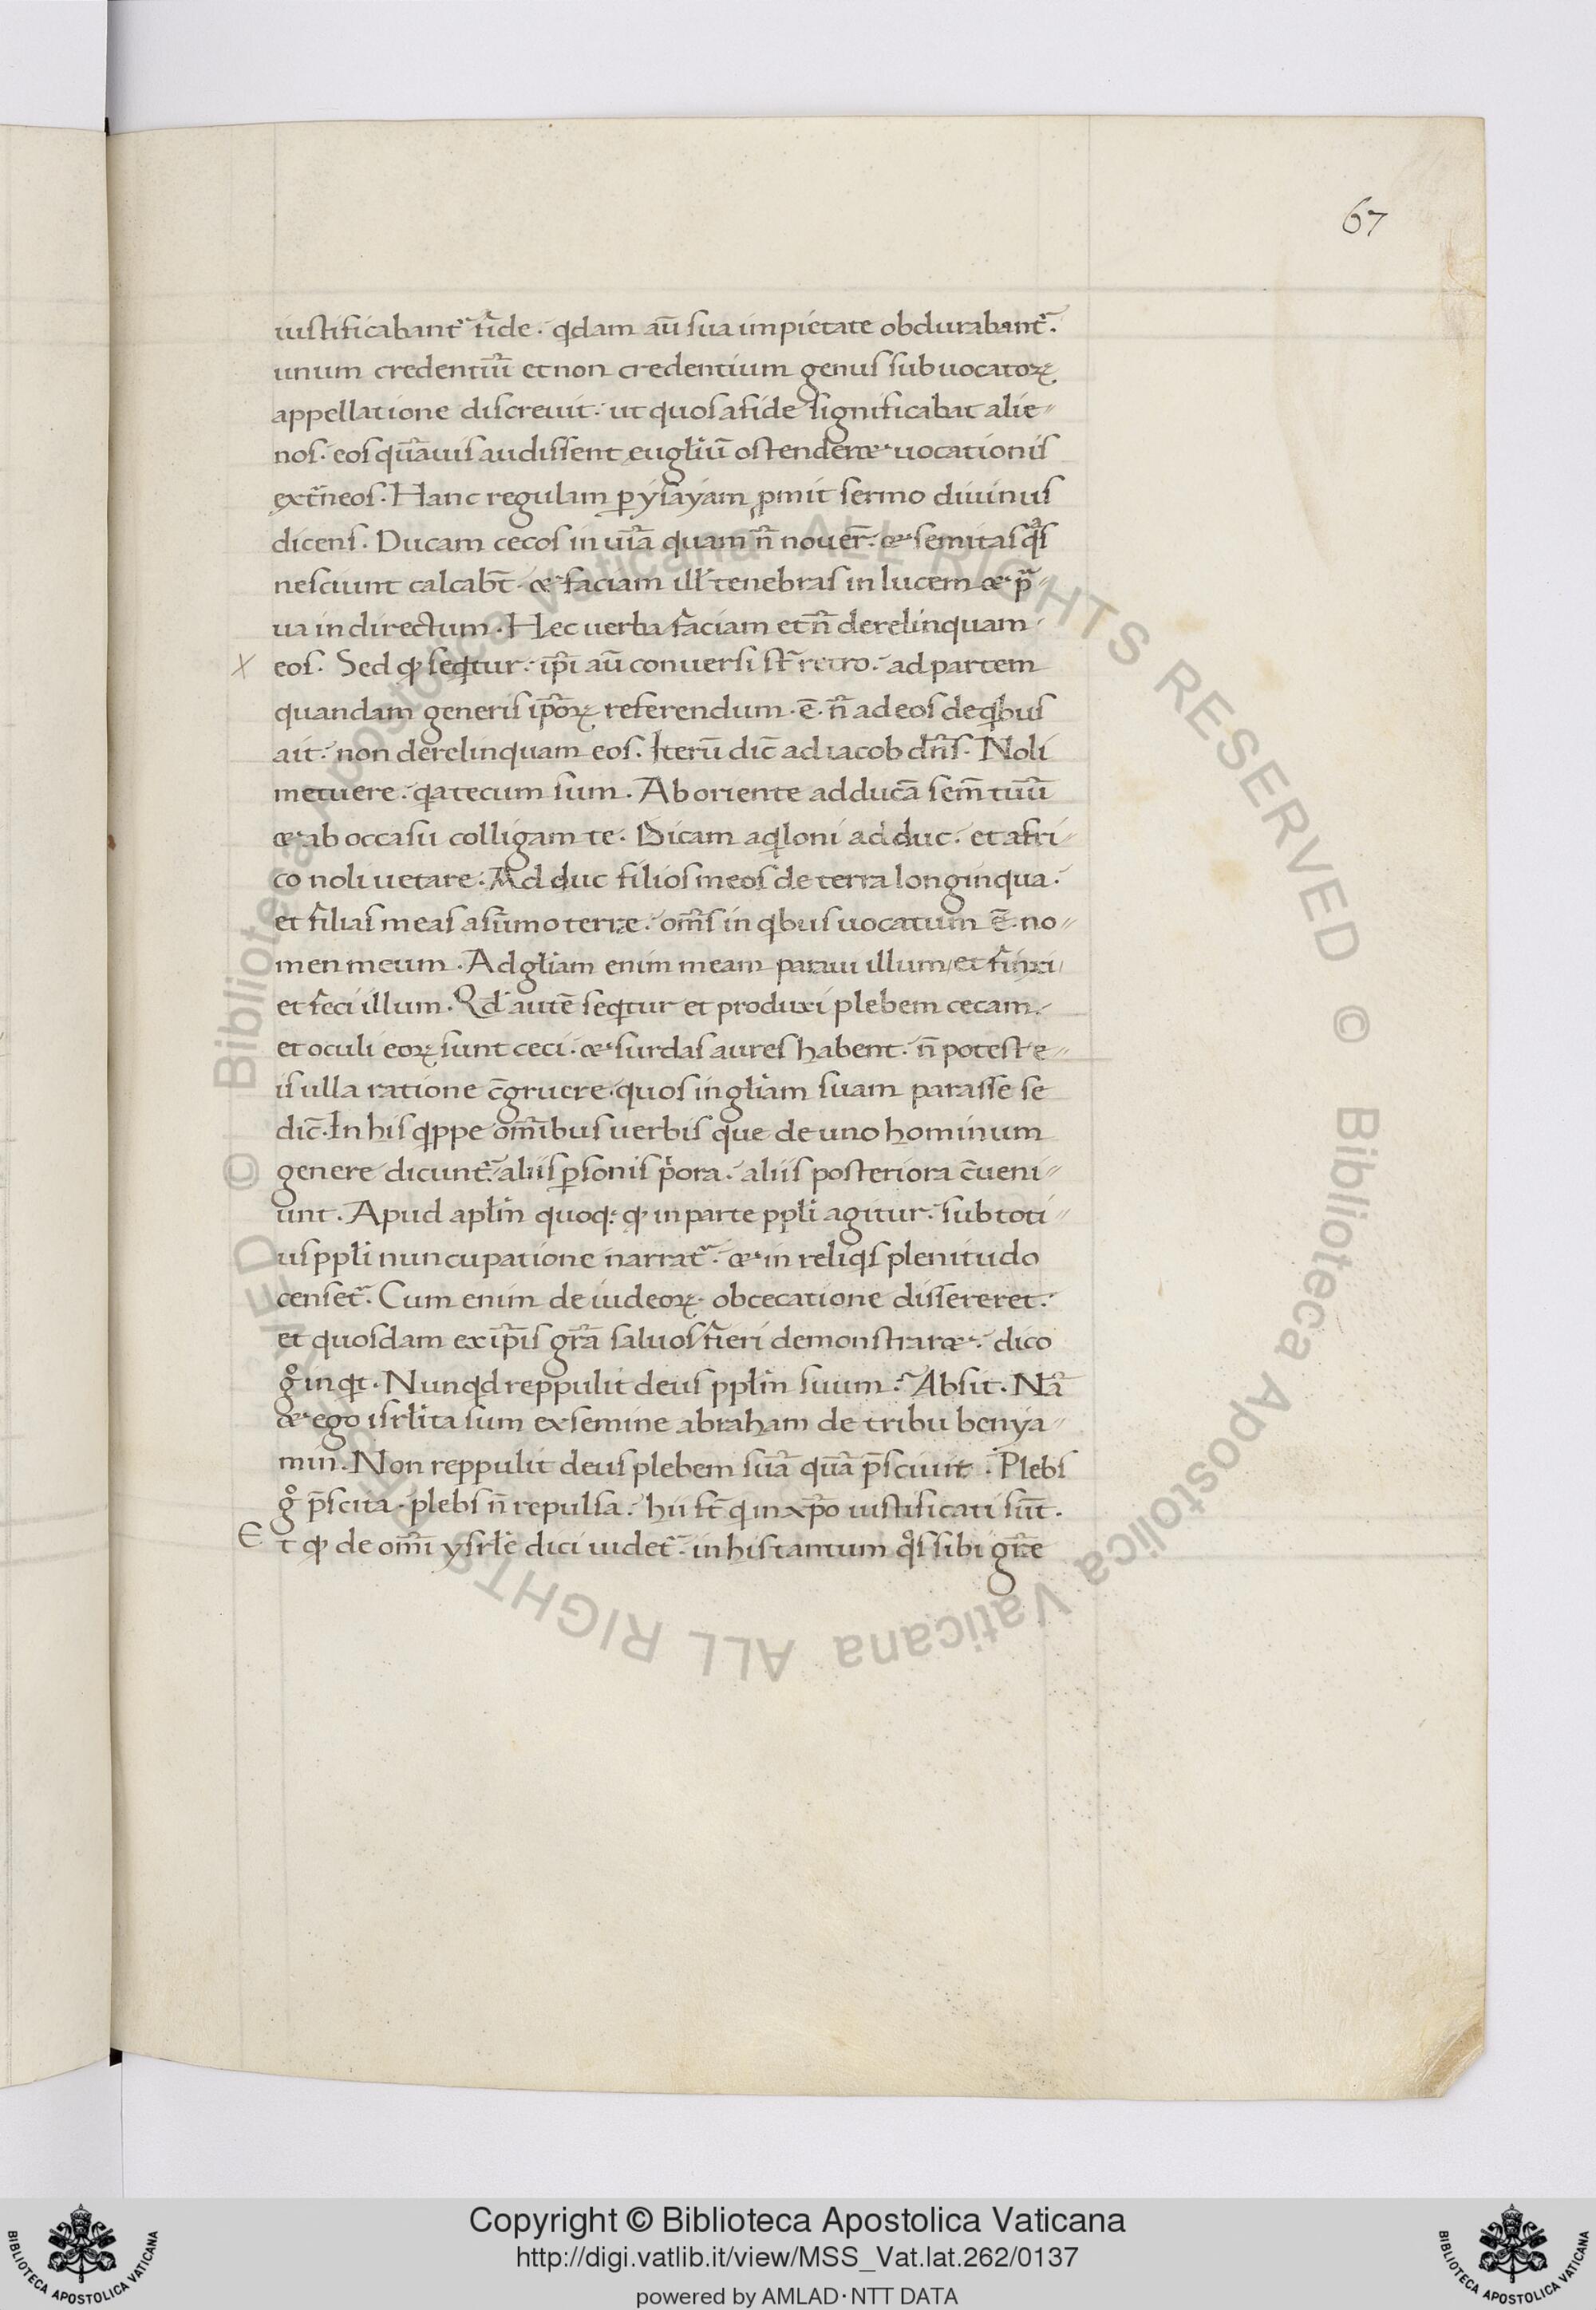 67
iustificabant᷑ fide. qdam aū sua impietate obdurabant᷑.
unum credentiū et non credentium genus sub uocatoꝝ
appellatione discreuit. ut quos a fide significabat alie〃
nos. eos quāuis audissent eugłiū ostenderæ uocationis
ext̄neos. Hanc regulam ꝑ ysayam ꝓmit sermo diuinus
dicens. Ducam cecos in uiā quam n̄ nouer̄. & semitas qͣs
nesciunt calcabt̄. & faciam ill᷑ tenebras in lucem & pͣ〃
ua in directum. Hec uerba faciam et n̄ derelinquam
eos. Sed ꝙ seqtur. ip̄i aū conuersi st̄ retro. ad partem
quandam generis ip̄oꝝ referendum. ē. n̄ ad eos de qbus
ait. non derelinquam eos. Iterū dic̄ ad iacob dn̄s. Noli
metuere. qa tecum sum. Ab oriente adducā sem̄ tuū
& ab occasu colligam te. Dicam aqloni adduc. et afri〃
co noli uetare. Adduc filios meos de terra longinqua.
et filias meas a sūmo terræ. om̄s in qbus uocatum ē. no〃
men meum. Ad głiam enim meam paraui illum/et finxi/
et feci illum. Qd̓ autē seqtur et produxi plebem cecam.
et oculi eoꝝ sunt ceci. & surdas aures habent. n̄ potest e〃
is ulla ratione c̄gruere. quos in głiam suam parasse se
dic̄. In his qppe om̄ibus uerbis que de uno hominum
genere dicunt᷑. aliis ꝑsonis pͥora. aliis posteriora c̄ueni〃
unt. Apud apłm quoq: ꝙ in parte ppłi agitur. sub toti〃
us ppłi nuncupatione narrat᷑. & in reliqs plenitudo
censet᷑. Cum enim de iudeoꝝ obcecatione dissereret.
et quosdam ex ip̄is gr̄a saluos fieri demonstraræ. dico
gͦ inqt. Nunqd reppulit deus ppłm suum? Absit. Nā
& ego isrłita sum ex semine abraham de tribu benya〃
min. Non reppulit deus plebem suā quā p̄sciuit. Plebs
gͦ p̄scita. plebs n̄ repulsa. hii st̄ q in xp̄o iustificati sūt.
Et ꝙ de om̄i ysrłe dici uidet᷑. in his tantum qͦs sibi gr̄e
Copyright © Biblioteca Apostolica Vaticana
http://digi.vatlib.it/view/MSS_Vat.lat.262/0137
powered by AMLAD·NTT DATA